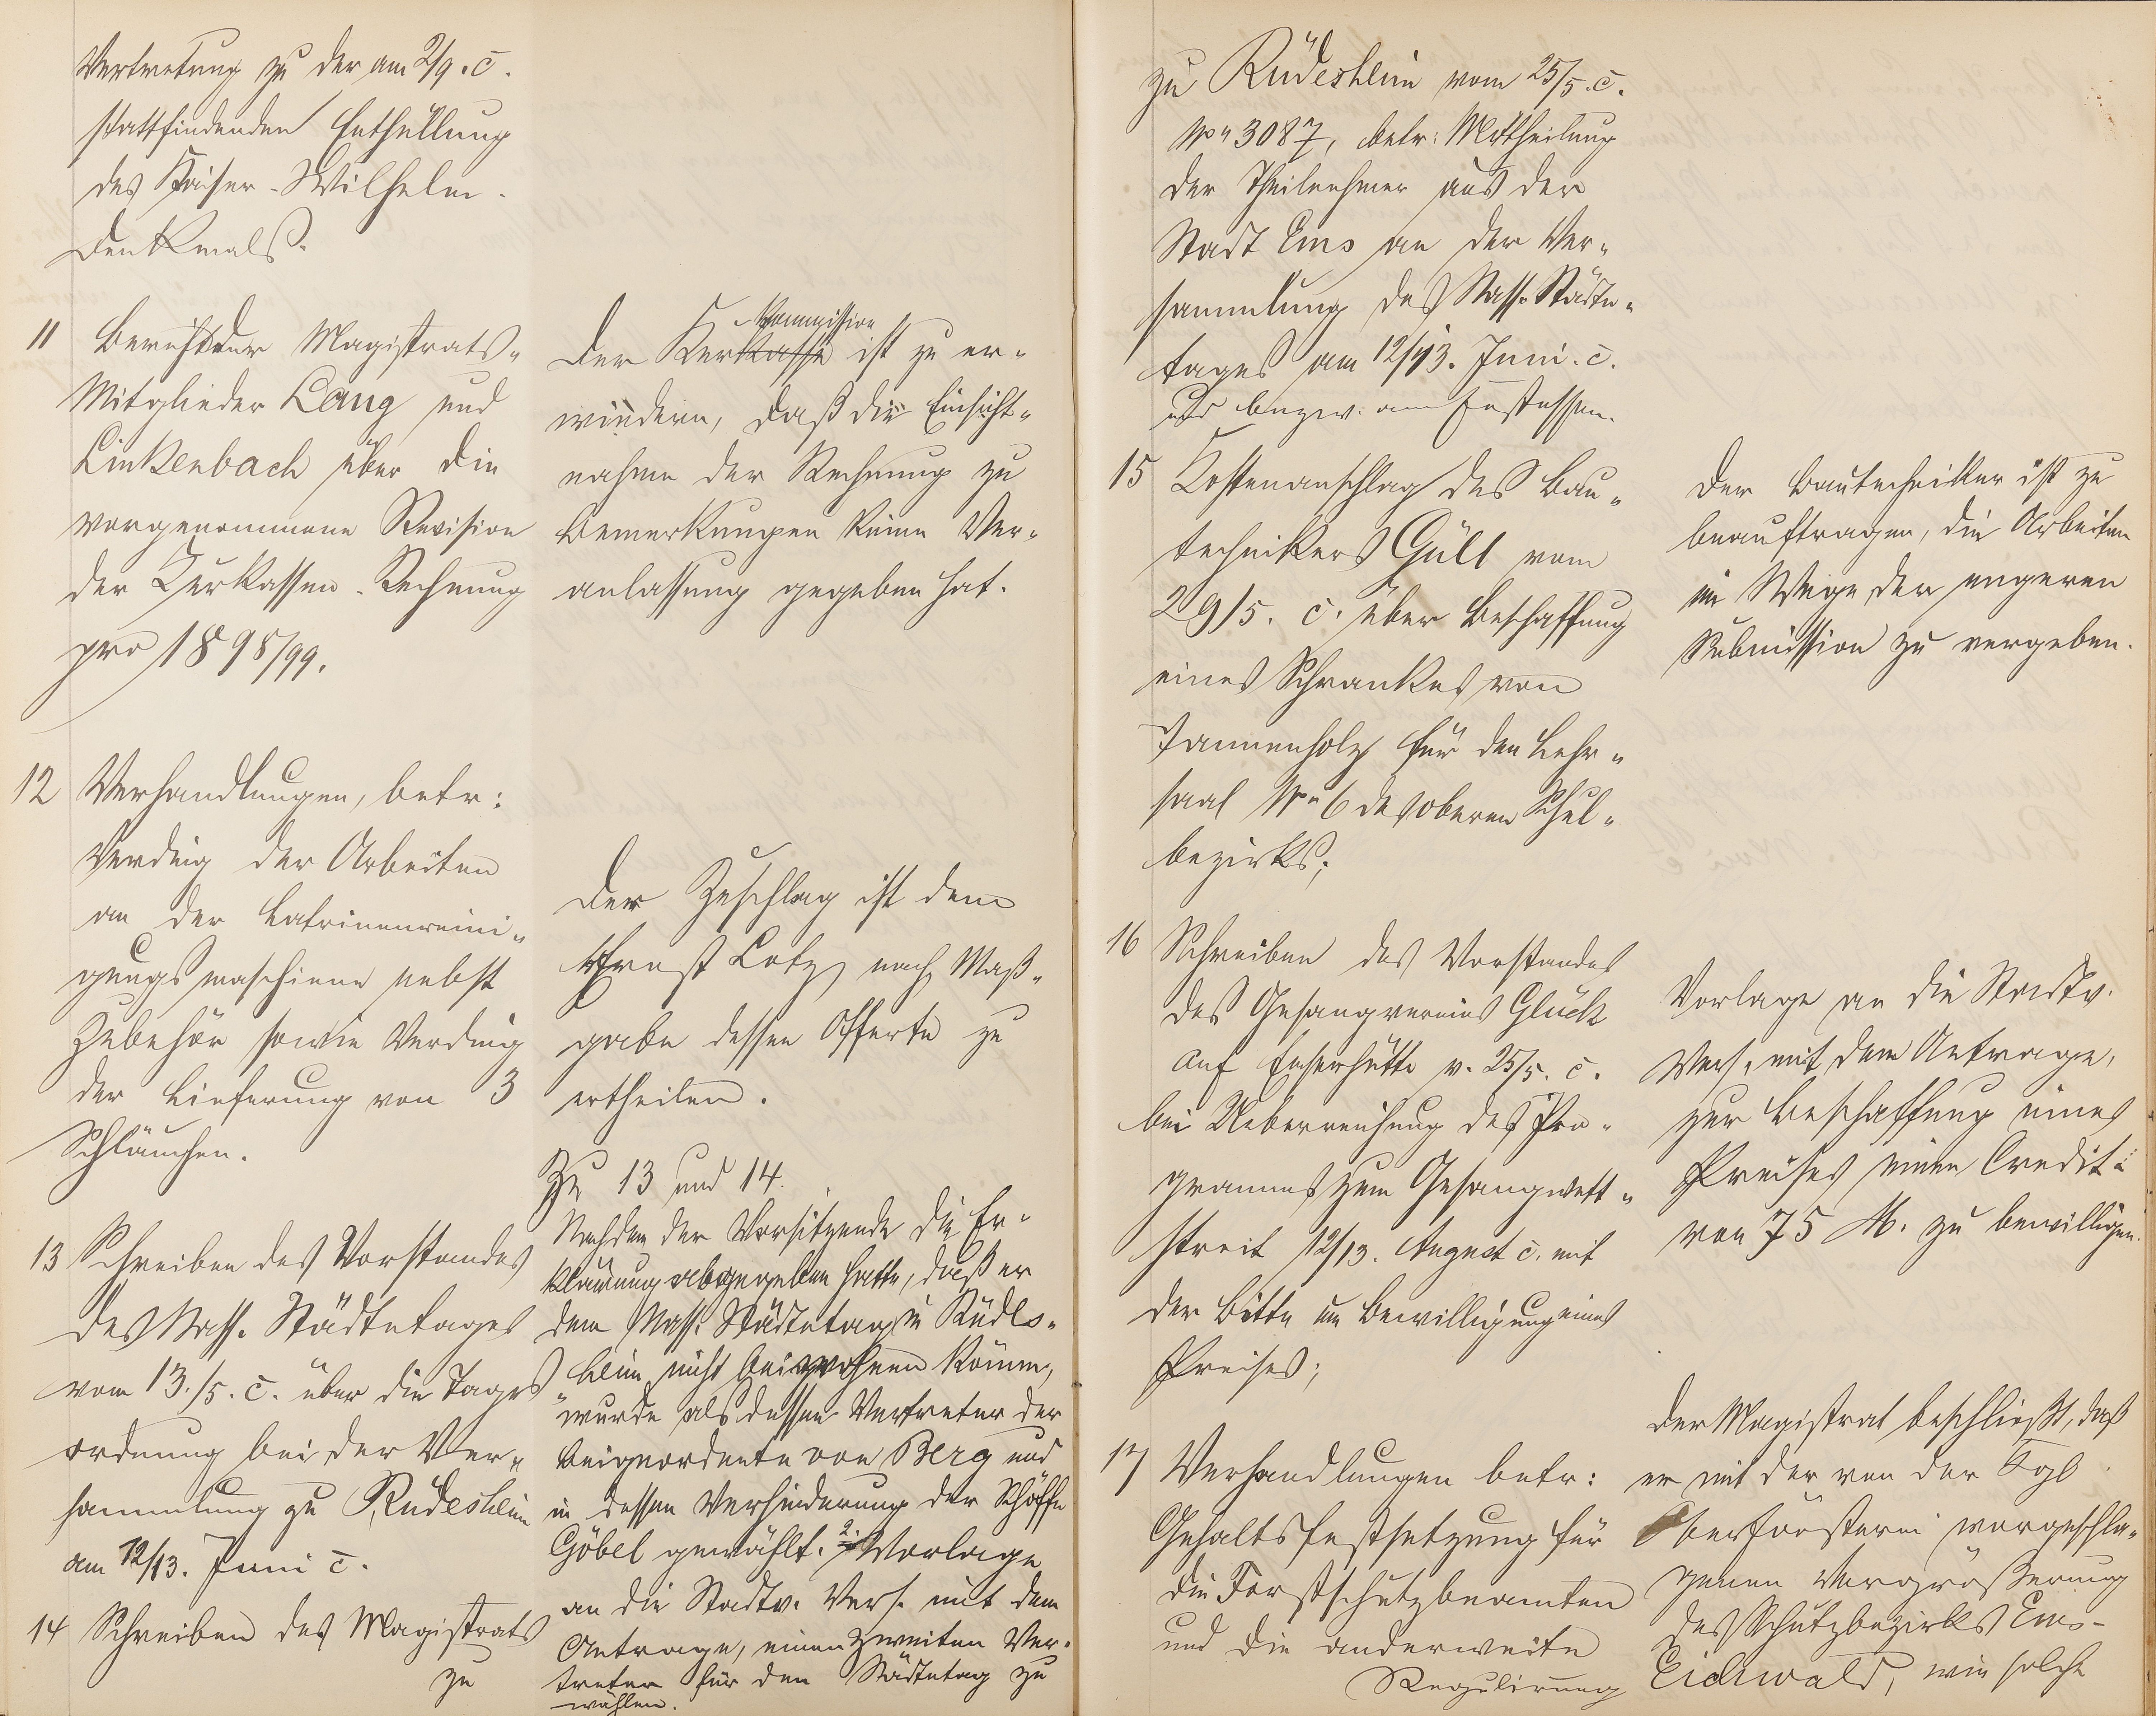 Vertretung zu der am 2/9. c.
stattfindenden Enthüllung
des Kaiser-Wilhelm-
Denkmals.
11 Bericht der Magistrats-
Mitglieder Lang und
Linkenbach über die
vorgenommene Revision
der Kurkassen-Rechnung
pro 1898/99.
Kommission
Der Kurkasse ist zu er-
wiedern, daß die Einsicht-
nahme der Rechnung zu
Bemerkungen keine Ver-
anlassung gegeben hat.
12 Verhandlungen, betr:
Verding der Arbeiten
an der Latrinenreini-
gungsmaschiene nebst
Zubehör sowie Verding
der Lieferung von 3
Schläuchen.
Der Zuschlag ist dem
Ernst Lotz nach Maß-
gabe dessen Offerte zu
ertheilen.
13 Schreiben des Vorstandes
des Nass. Städtetages
vom 13./5. c. über die Tages
ordnung bei der Ver-
sammlung zu Rüdesheim
am 12/13. Juni c.
14 Schreiben des Magistrats
zu
Zu 13 und 14.
Nachdem der Vorsitzende die Er-
klärung abgegeben hatte, daß er
dem Nass. Städtetag in Rüdes-
heim nicht beiwohnen könne,
wurde als dessen Vertreter der
Beigeordnete von Berg und
in dessen Verhinderung der Schöffe
Göbel gewählt. 2. Vorlage
an die Stadtv. Vers. mit dem
Antrage, einen zweiten Ver-
treter für den Städtetag zu
wählen.
zu Rüdesheim vom 25/5. c.
No 3087, betr: Mittheilung
der Theilnehmer aus der
Stadt Ems an der Ver-
sammlung des Nass. Städte-
tages am 12/13. Juni. c.
und bezw. am Festessen.
15 Kostenanschlag des Bau-
technikers Güll vom
29/5. c. über Beschaffung
eines Schrankes von
Tannenholz für den Lehr-
saal No 6 des oberen Schul-
bezirks;
Der Bautechniker ist zu
beauftragen, die Arbeiten
im Wege der engeren
Submission zu vergeben.
16 Schreiben des Vorstandes
des Gesangvereins Glück
auf Emserhütte v. 25/5. c.
bei Ueberreichung des Pro-
gramms zum Gesangwett-
streit 12/13. August c. mit
der Bitte um Bewilligung eines
Preises;
Vorlage an die Stadtv.
Vers. mit dem Antrage,
zur Beschaffung eines
Preises einen Credit
von 75 M. zu bewilligen.
17 Verhandlungen betr:
Gehaltsfestsetzung für
die Forstschutzbeamten
und die anderweite
Regulirung
Der Magistrat beschließt, daß
er mit der von der Kgl
Oberförsterei vorgeschla-
genen Vergrößerung
des Schutzbezirks Ems-
Eichwald, wie solche